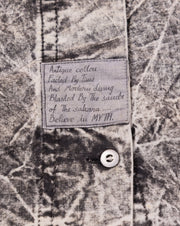 Antique cotton
Faded By Time
And Modern dying
Blasted By the sands
of the sahara
Believe in MYTH.